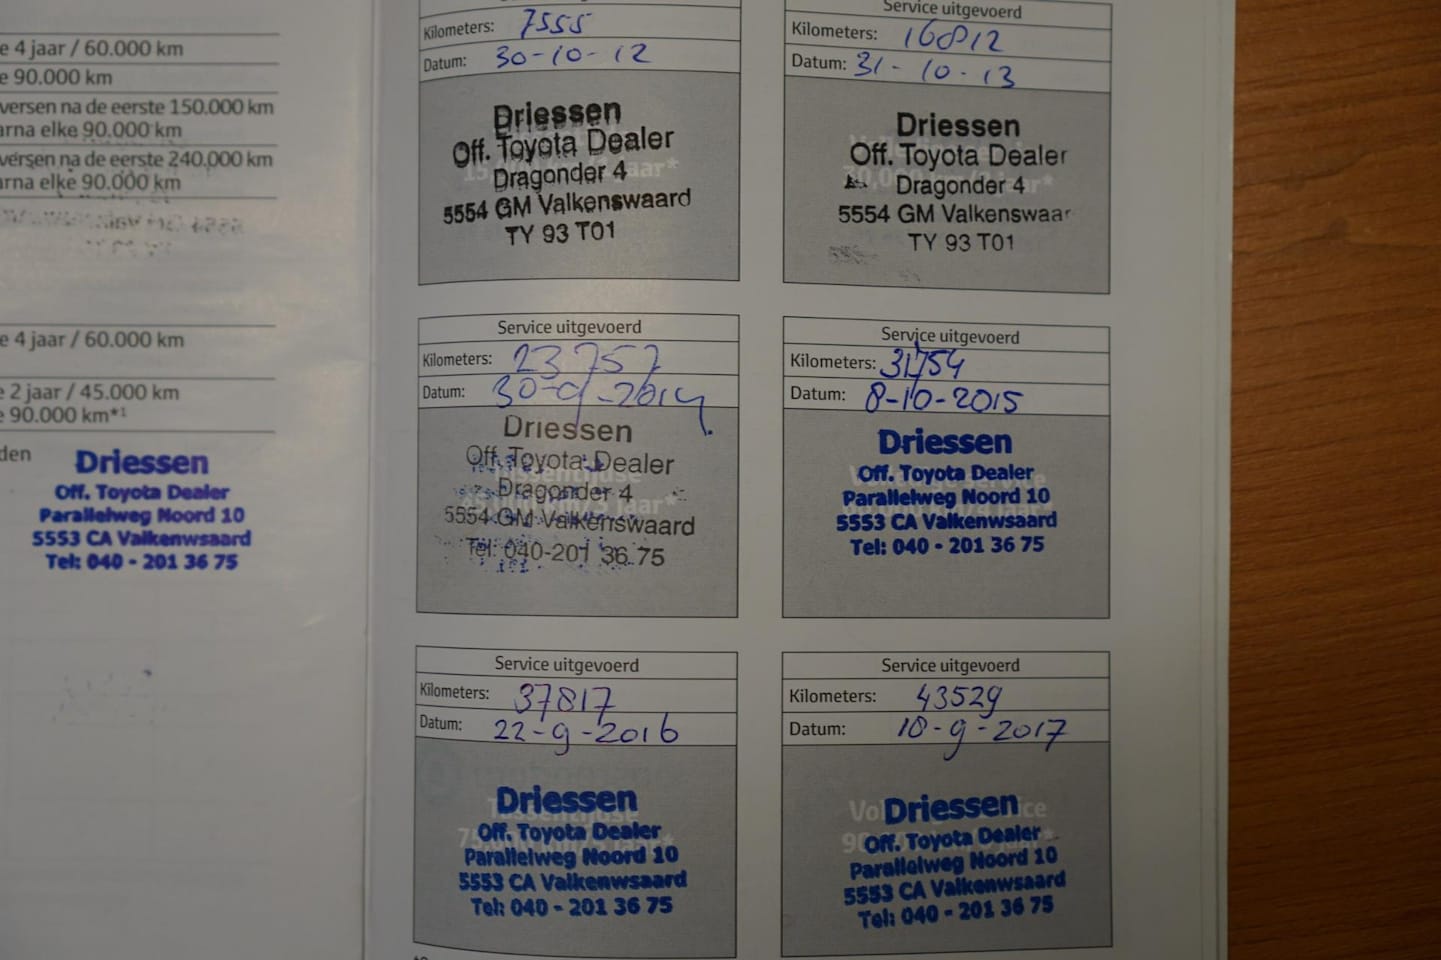 e 4 jaar / 60.000 km
e 90.000 km
versen na de eerste 150.000 km
arna elke 90.000 km
versen na de eerste 240.000 km
arna elke 90.000 km
e 4 jaar / 60.000 km
e 2 jaar / 45.000 km
e 90.000 km*¹
den
Driessen
Off. Toyota Dealer
Parallelweg Noord 10
5553 CA Valkenwsaard
Tel: 040 - 201 36 75
Kilometers: 7555
Datum: 30-10-12
Driessen
Off. Toyota Dealer
Dragonder 4
5554 GM Valkenswaard
TY 93 T01
Service uitgevoerd
Kilometers: 16812
Datum: 31-10-13
Driessen
Off. Toyota Dealer
Dragonder 4
5554 GM Valkenswaar
TY 93 T01
Service uitgevoerd
Kilometers: 23757
Datum: 30-9-2014
Driessen
Off. Toyota Dealer
Dragonder 4
5554 GM Valkenswaard
Tel: 040-201 36 75
Service uitgevoerd
Kilometers: 31754
Datum: 8-10-2015
Driessen
Off. Toyota Dealer
Parallelweg Noord 10
5553 CA Valkenwsaard
Tel: 040 - 201 36 75
Service uitgevoerd
Kilometers: 37817
Datum: 22-9-2016
Driessen
Off. Toyota Dealer
Parallelweg Noord 10
5553 CA Valkenwsaard
Tel: 040 - 201 36 75
Service uitgevoerd
Kilometers: 43529
Datum: 18-9-2017
Driessen
Off. Toyota Dealer
Parallelweg Noord 10
5553 CA Valkenwsaard
Tel: 040 - 201 36 75